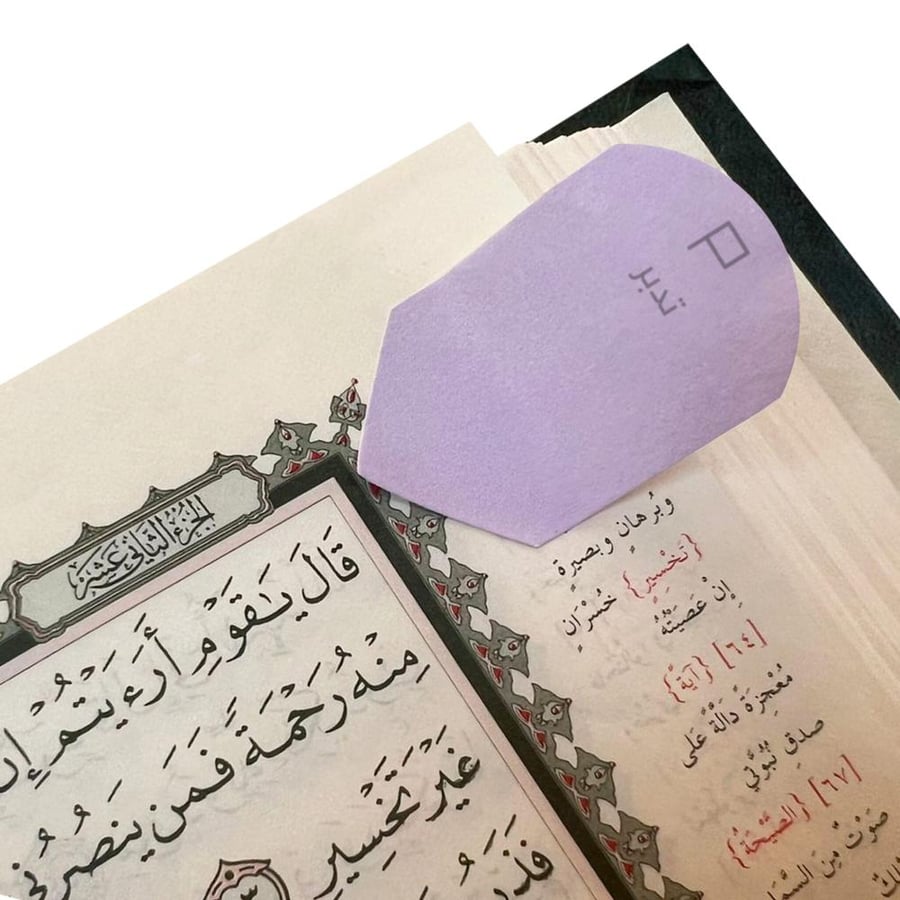 تدبر
الجزء الثاني عشر
قَالَ يَـٰقَوْمِ أَرَءَيْتُمْ إِن
مِنْهُ رَحْمَةً فَمَن يَنصُرُنِى
غَيْرَ تَخْسِيرٍ
وبُرهانٍ وبصيرةٍ
{تَخْسيرٍ} خُسْرَانٍ
إِنْ عَصَيْتُهُ
[٦٤] {آيَةً}
مُعْجِزَةً دَالَّةً عَلى
صدقِ نُبُوَّتي
[٦٧] {الصَّيْحَةُ}
صَوْتٌ مِنَ